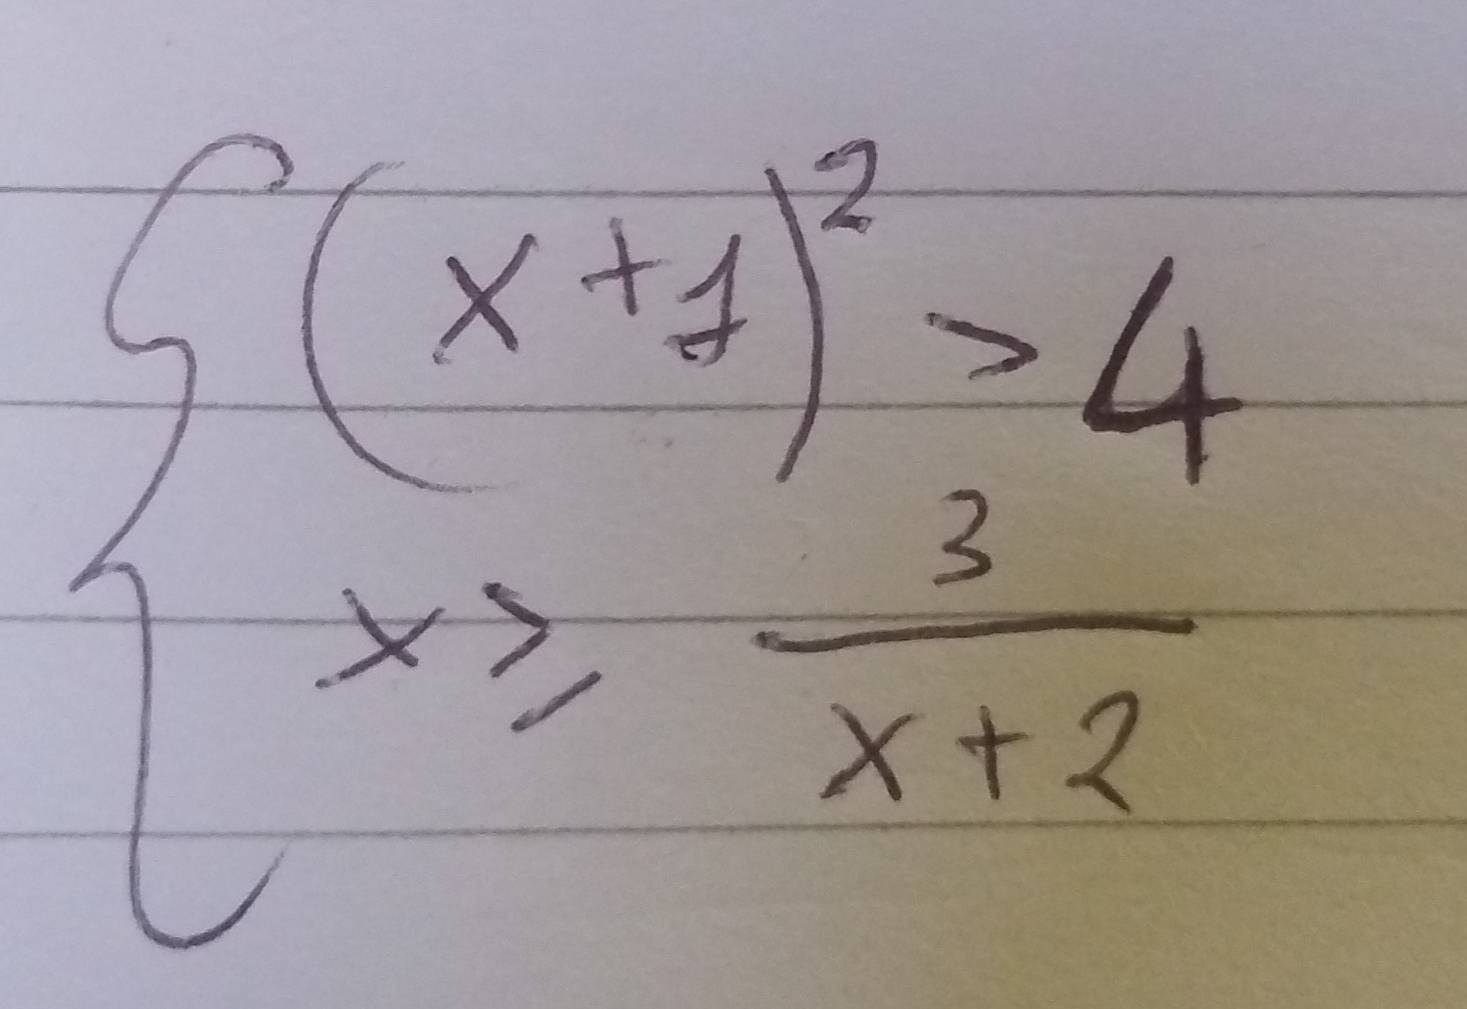 (x+1)² > 4
x ≥ 3/(x+2)